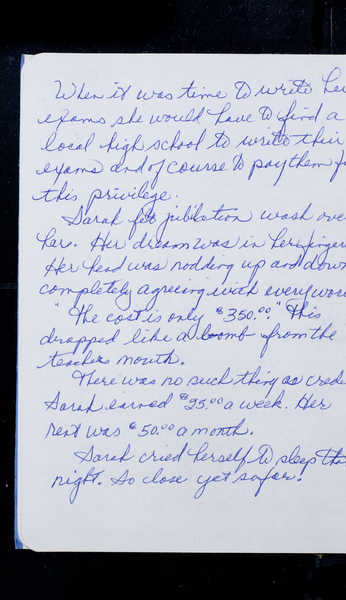 When it was time to write her
exams she would have to find a
local high school to write their
exams and of course to pay them f
this privilege.
Sarah felt jubilation wash ove
her. Her dream was in her finger
Her head was nodding up and down
completely agreeing with every wor
"The cost is only $350.00" This
dropped like a bomb from the
teachers mouth.
There was no such thing as cred
Sarah earned $25.00 a week. Her
rent was $50.00 a month.
Sarah cried herself to sleep tha
night. So close yet so far.